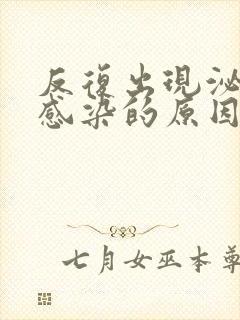 反復出現泌
感染的原因
七月女巫本尊